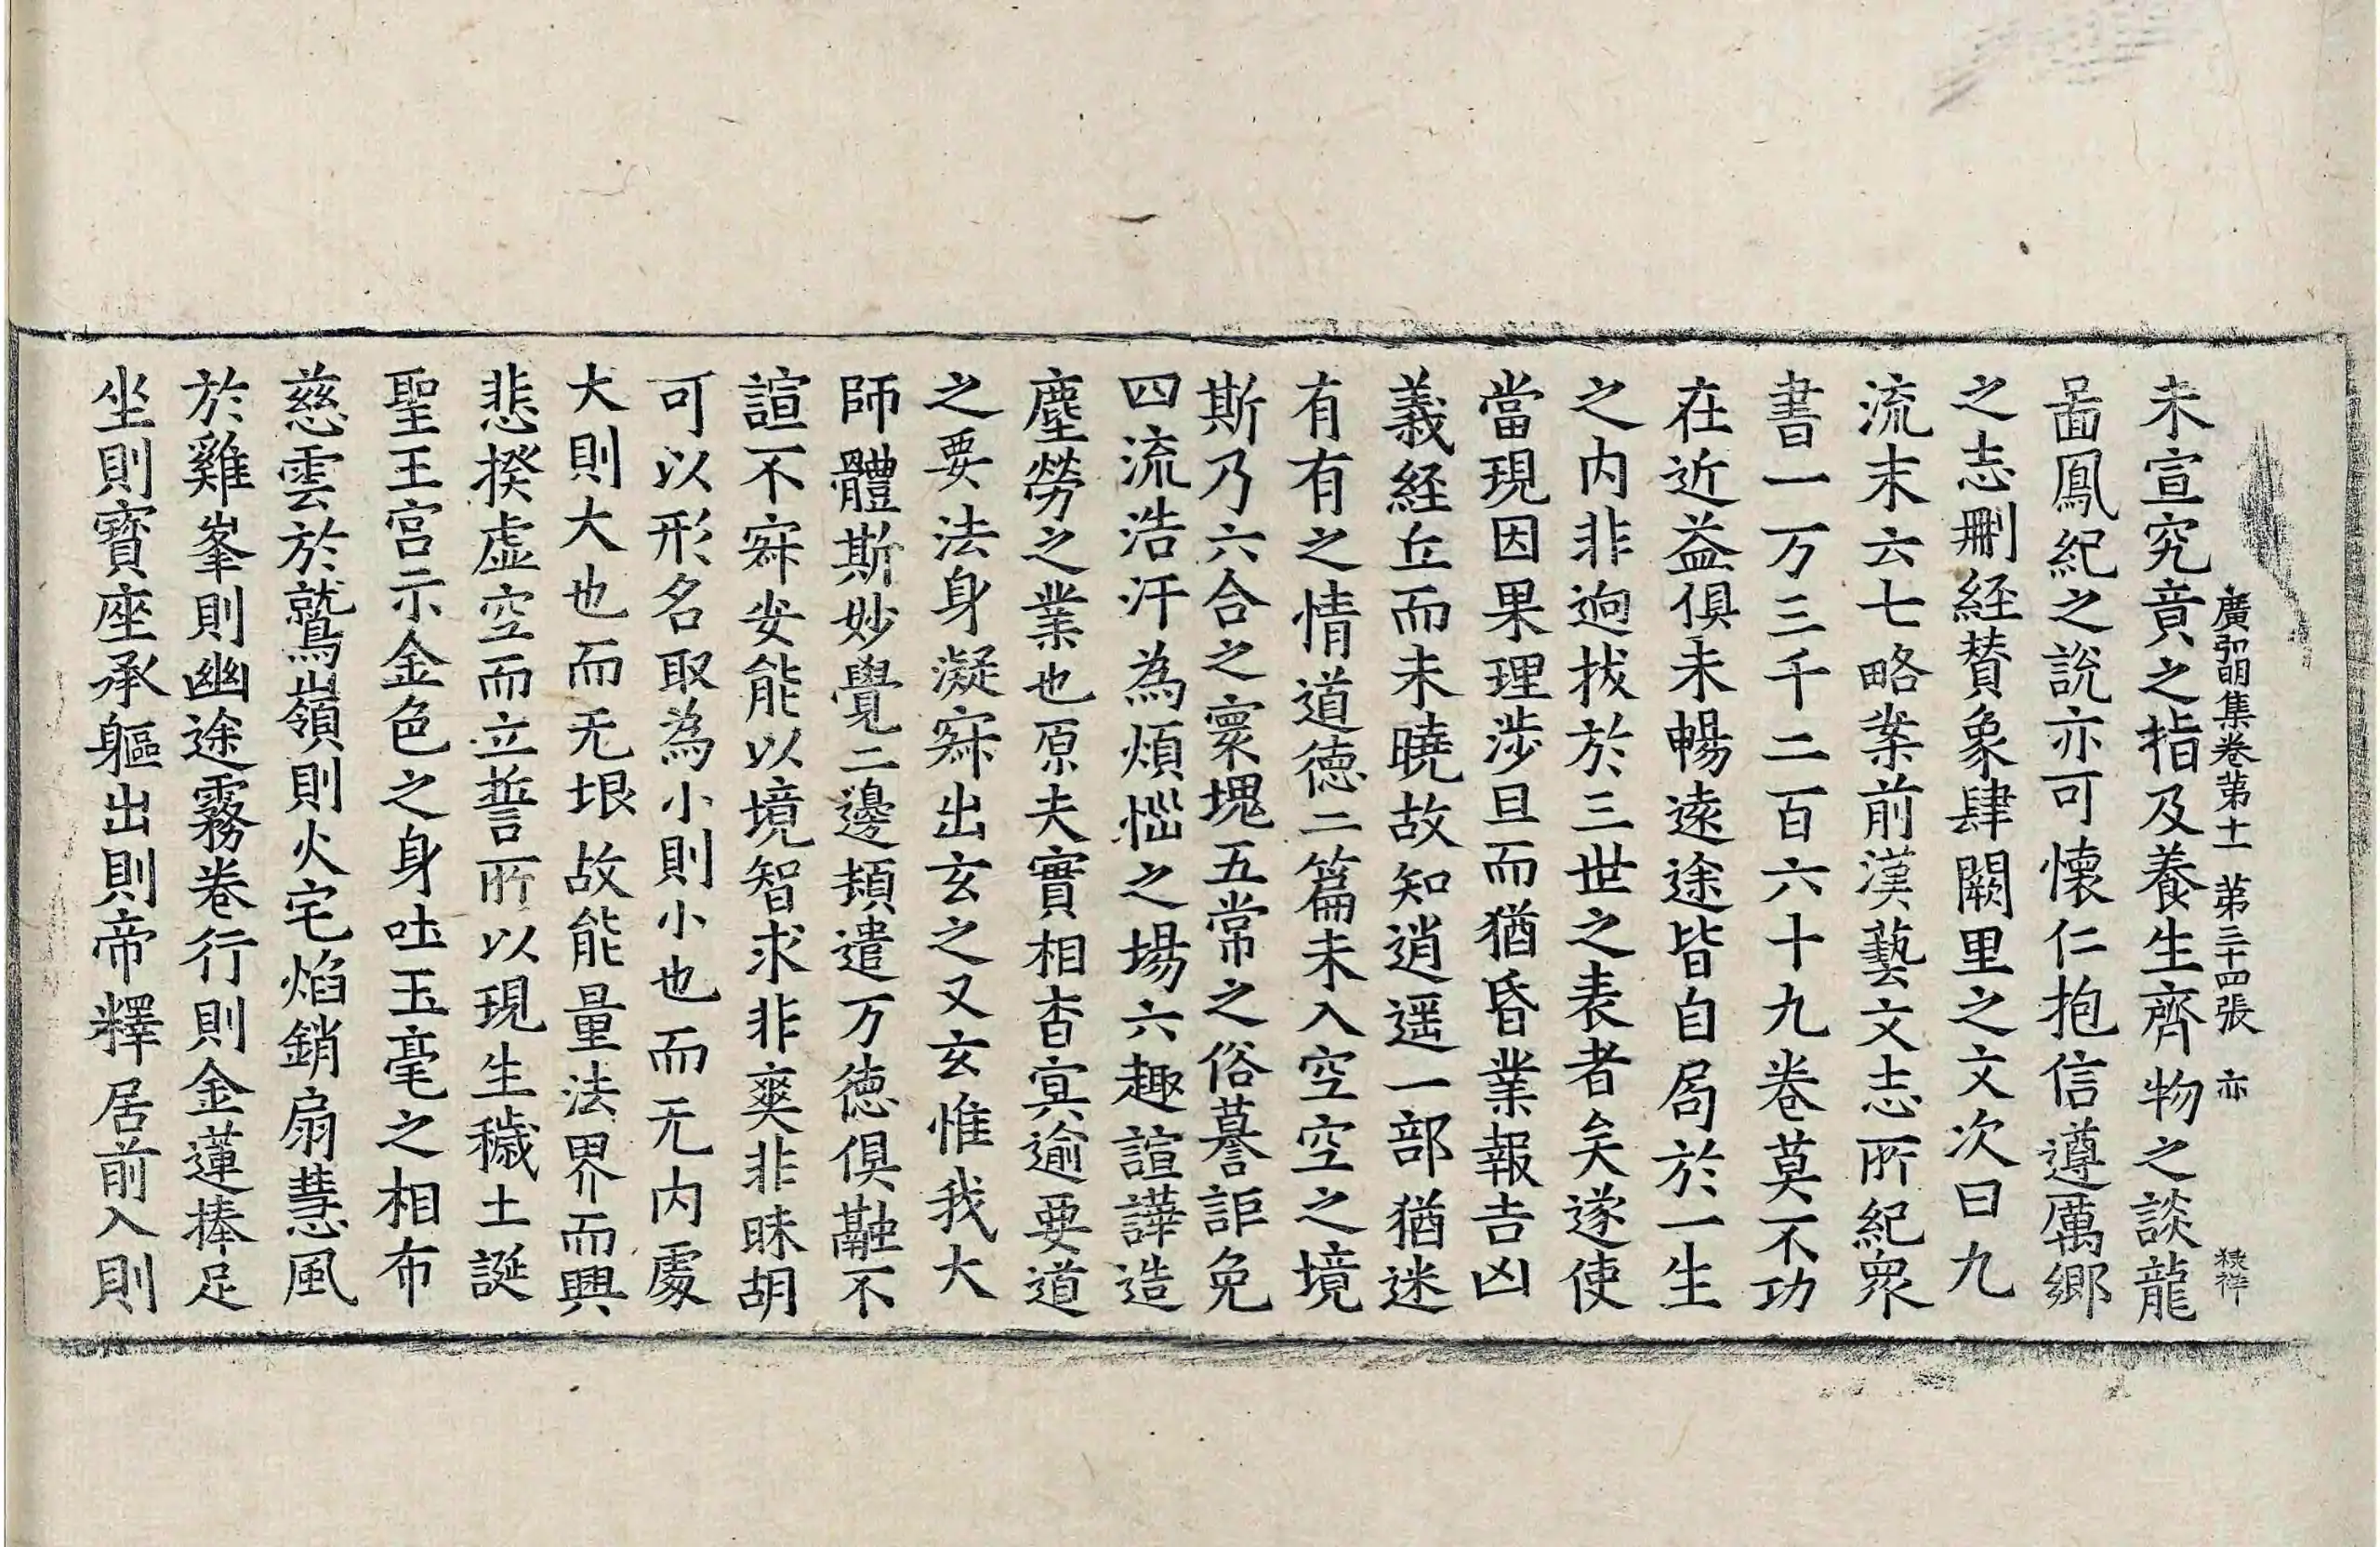 廣弘明集卷苐十一 苐三十四張 亦 𥞵祥
未宣究賁之指及養生齊物之談龍
啚鳳紀之說亦可懷仁抱信遵厲鄉
之志刪経賛象肆闕里之文次曰九
流末云七略案前漢藝文志所紀衆
書一万三千二百六十九卷莫不功
在近益俱未暢遠途皆自局於一生
之內非逈拔於三世之表者矣遂使
當現因果理涉旦而猶昏業報吉凶
義経丘而未曉故知逍遥一部猶迷
有有之情道徳二篇未入空空之境
斯乃六合之寰塊五常之俗謩詎免
四流浩汗為煩惱之場六趣諠譁造
塵勞之業也原夫實相杳㝠逾要道
之要法身凝寂出玄之又玄惟我大
師體斯妙覺二邊頻遣万徳俱融不
諠不寂安能以境智求非爽非昧胡
可以形名取為小則小也而无內處
大則大也而无垠故能量法界而興
悲揆虛空而立誓所以現生穢土誕
聖王宮示金色之身吐玉毫之相布
慈雲於鷲嶺則火宅焰銷扇慧風
於雞峯則幽途霧卷行則金蓮捧足
坐則寶座承軀出則帝釋居前入則